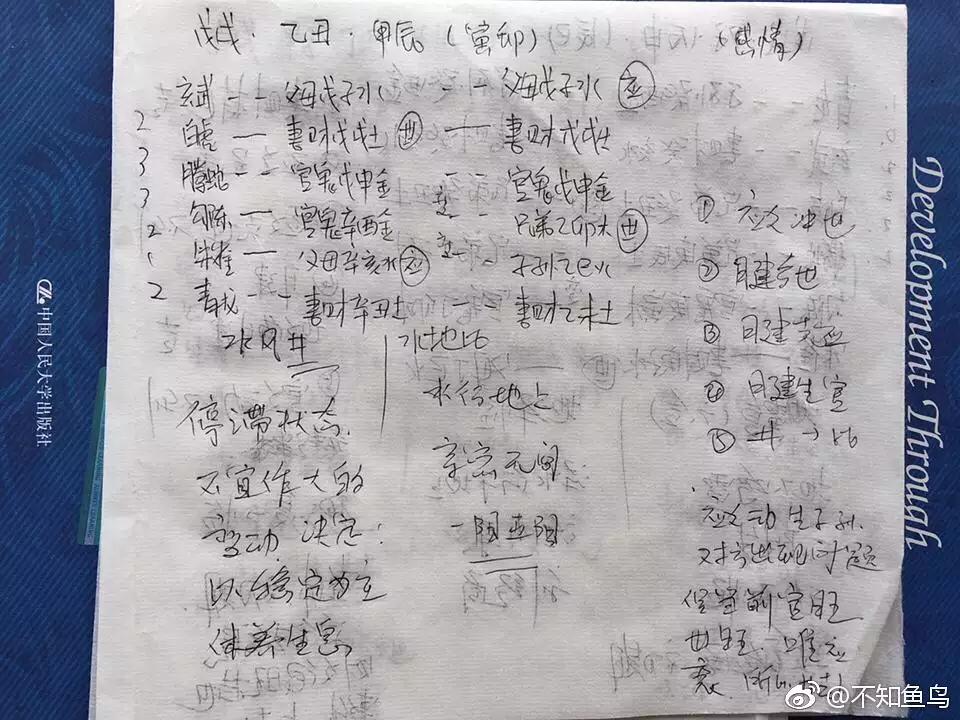 戊戌·乙丑·甲辰(寅卯) (感情)
玄武 -- 父母戊子水 -- 父母戊子水 应
2 白虎 — 妻财戊戌土 世 — 妻财戊戌土
3 腾蛇 -- 官鬼戊申金 -- 官鬼戊申金
3 勾陈 — 官鬼辛酉金 -- 兄弟乙卯木 世
2 朱雀 — 父母辛亥水 应 -- 子孙乙巳火
2 青龙 -- 妻财辛丑土 妻财乙未土
水风井
水地比
停滞状态
不宜作大的
变动 决定:
以稳定为主
休养生息
水行地上
亲密无间
① 应爻冲世
② 日建合世
③ 日建
④ 日建生官
⑤ 井→比
应爻动生子孙.
对方出现问题
官旺
世旺. 唯应
衰.
中国人民大学出版社
Development Through
@不知鱼鸟